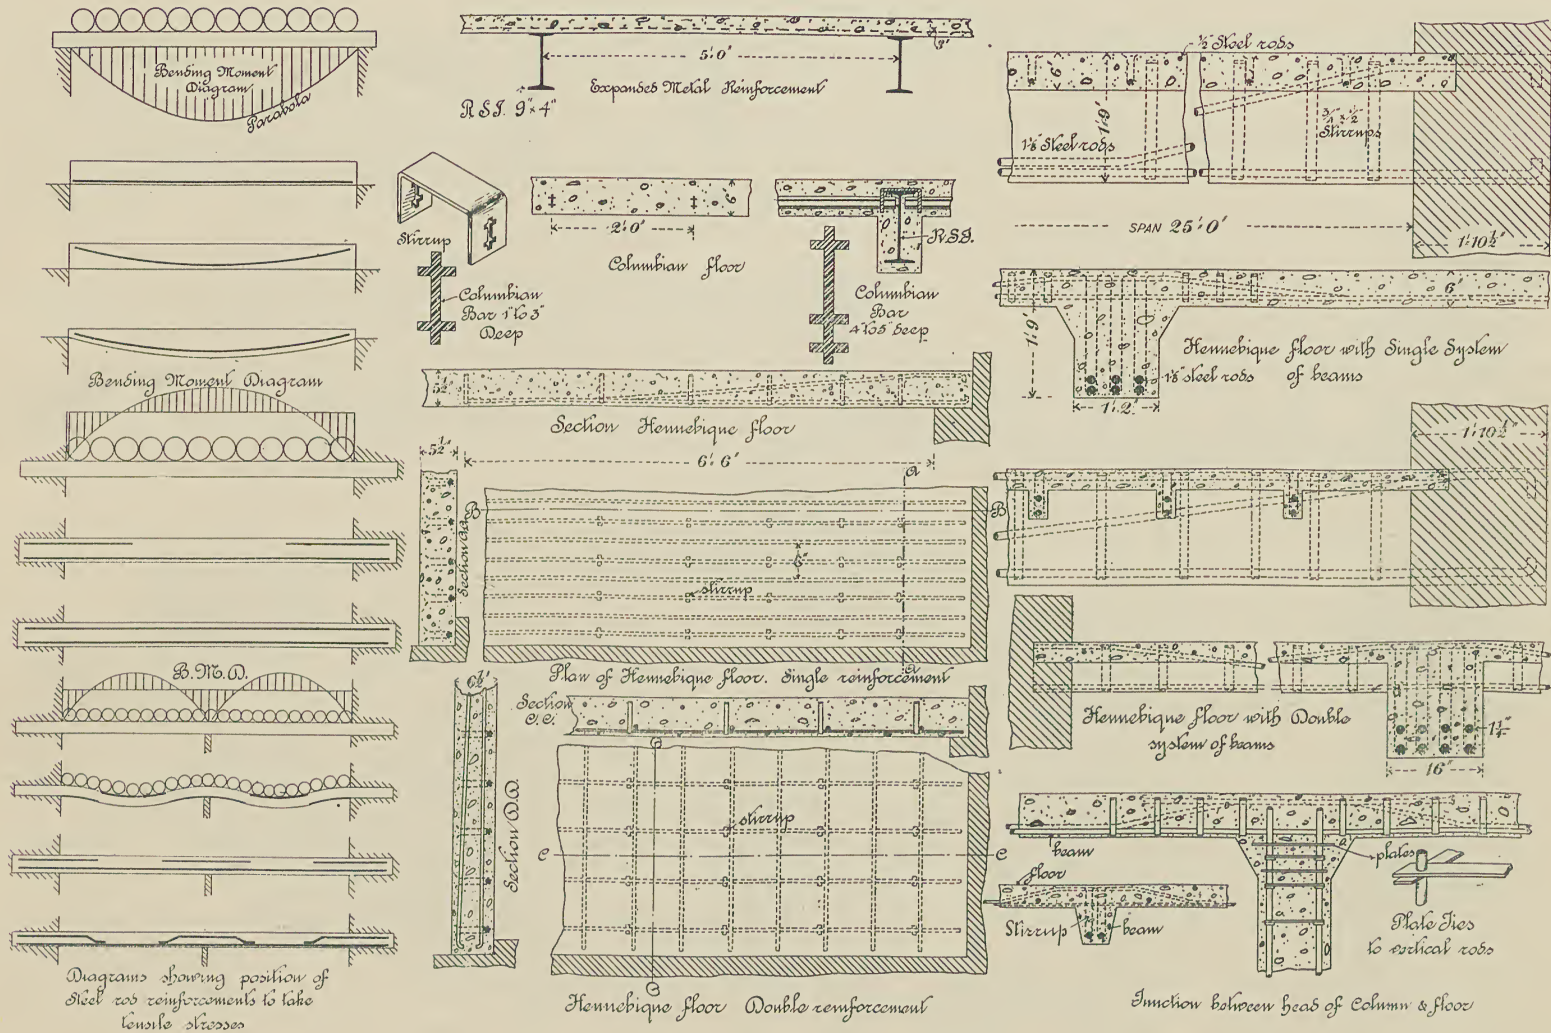 Bending Moment
Diagram
Parabola
Bending Moment Diagram
B.M.D.
Diagrams showing position of
Steel rod reinforcements to take
tensile stresses
5'.0"
3"
R.S.J. 9"×4"
Expanded Metal Reinforcement
Stirrup
2'.0"
6"
Columbian floor
R.S.J.
Columbian
Bar 1" to 3"
Deep
Columbian
Bar
4" to 5" deep
5½"
Section Hennebique floor
5½"
6'.6"
a
B
B
Section aa
6"
stirrup
a
Plan of Hennebique floor. Single reinforcement
6½"
Section
C.C.
Section D.D.
stirrup
C
C
Hennebique floor Double reinforcement
½" Steel rods
6"
1'.9"
1⅛" Steel rods
Stirrups
SPAN 25'.0"
1'.10½"
6"
1'.9"
Hennebique floor with Single System
of beams
1⅛" steel rods
1'.2"
1'.10½"
Hennebique floor with Double
system of beams
1¼"
16"
beam
plates
floor
Stirrup
beam
Plate Ties
to vertical rods
Junction between head of Column & floor